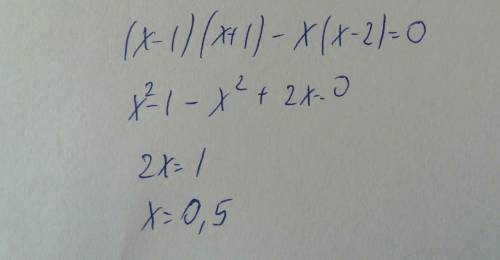 (x-1)(x+1)-x(x-2)=0
x²-1-x²+2x=0
2x=1
x=0,5